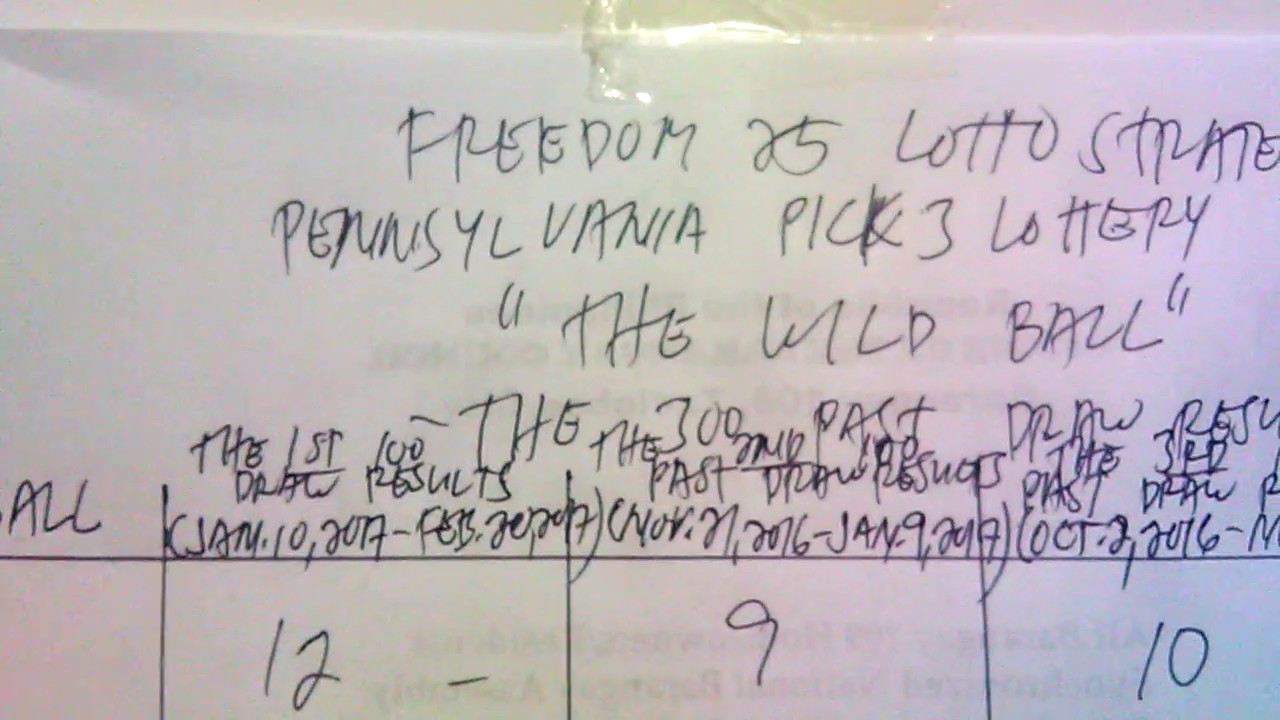 FREEDOM 25 LOTTO STRATE
PENNSYLVANIA PICK 3 LOTTERY
"THE WILD BALL"
- THE 300 PAST DRAW RESU
THE 1ST 100 THE 2ND 100 THE 3RD
DRAW RESULTS PAST DRAW RESULTS PAST DRAW R
ALL (JAN. 10, 2017 - FEB. 20, 2017) (NOV. 21, 2016 - JAN. 9, 2017) (OCT. 2, 2016 - N
12 - 9 10